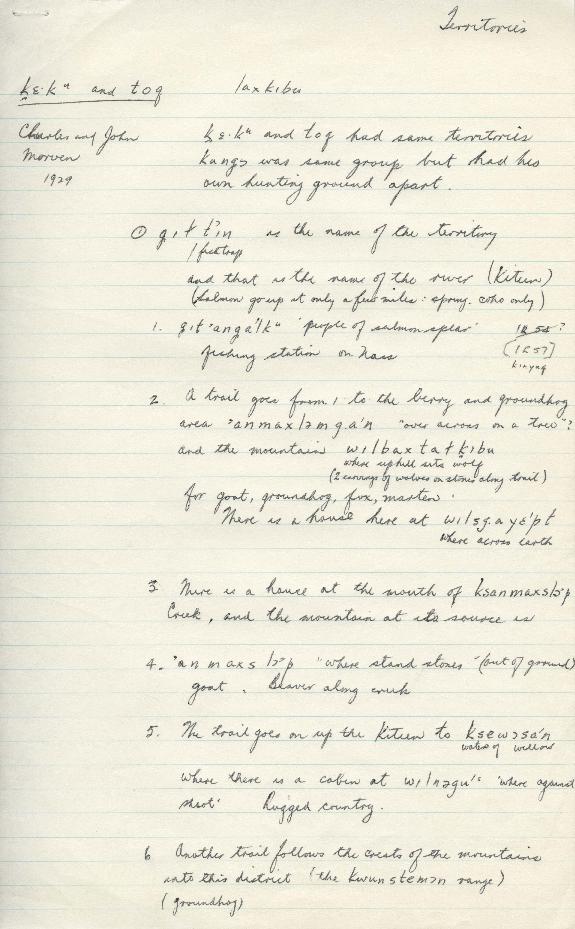 Territories
ḵɛ·kᵘ and toq laxkıbu
Charles and John
Morven
1929
ḵɛ·kᵘ and toq had same territories
kangɔ was same group but had his
own hunting ground apart.
① g.ıtt'ın is the name of the territory
/fishtrap
and that is the name of the river (Kiteen)
(Salmon go up it only a few miles: spring. coho only)
1. git'anga'lkᵘ 'people of salmon spear' 1R54?
fishing station on Nass [1R57]
kinyaq
2. A trail goes from 1 to the berry and groundhog
area 'anmaxlɔmg.a'n "over across on a tree"?
and the mountain wılbaxtaɬkıbu
where uphill sits wolf
(2 carvings of wolves on stones along trail)
for goat, groundhog, fox, marten.
There is a house here at wılsg.ayɛ'pt
where across earth
3 There is a house at the mouth of ksanmaxslɔ'p
Creek, and the mountain at its source is
4. 'anmaxslɔ'p "where stand stones" (out of ground)
goat. Beaver along creek
5. The trail goes on up the Kiteen to ksewɔsa'n
water of willow
where there is a cabin at wılnɔgu'ᵗ 'where against
shoot' Rugged country.
6 Another trail follows the crests of the mountains
into this district (the Kwunstemɔn range)
(groundhog)